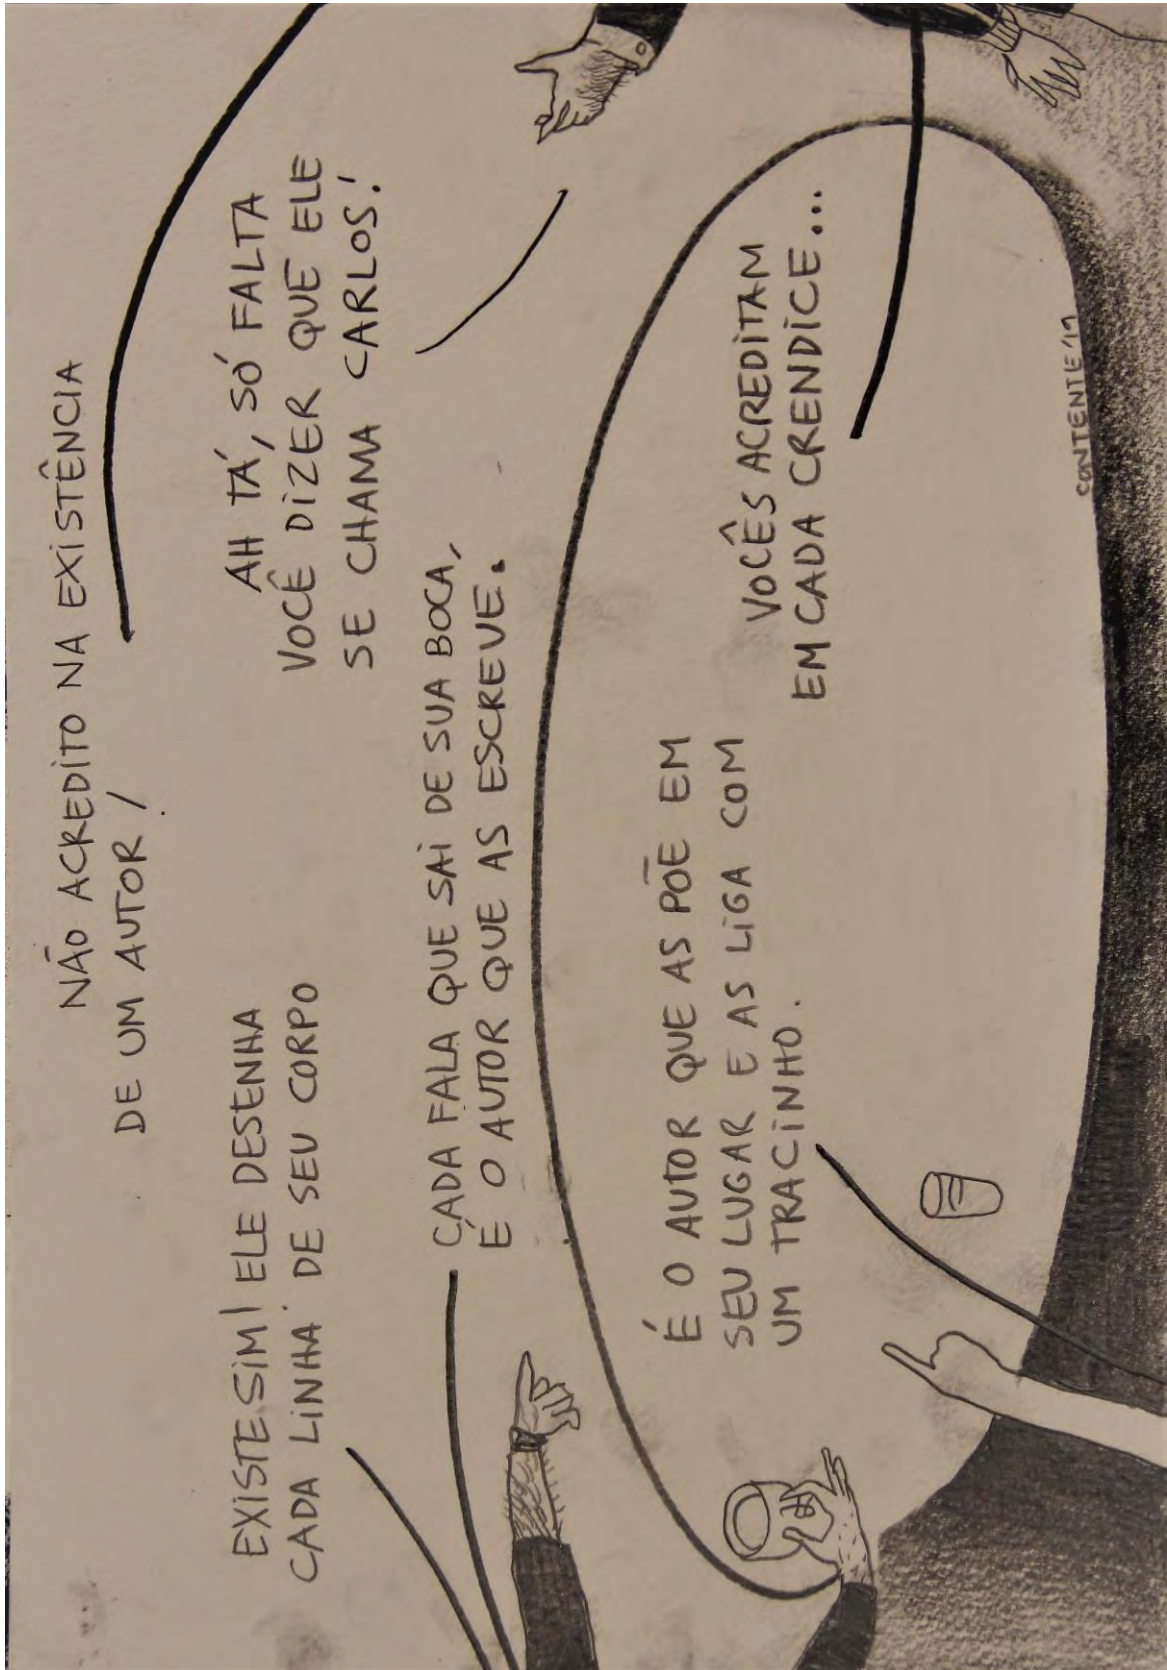 NÃO ACREDITO NA EXISTÊNCIA
DE UM AUTOR!
EXISTE SIM! ELE DESENHA
CADA LINHA DE SEU CORPO
AH TÁ, SÓ FALTA
VOCÊ DIZER QUE ELE
SE CHAMA CARLOS!
CADA FALA QUE SAI DE SUA BOCA,
É O AUTOR QUE AS ESCREVE.
É O AUTOR QUE AS PÕE EM
SEU LUGAR E AS LIGA COM
UM TRACINHO.
VOCÊS ACREDITAM
EM CADA CRENDICE...
CONTENTE '17